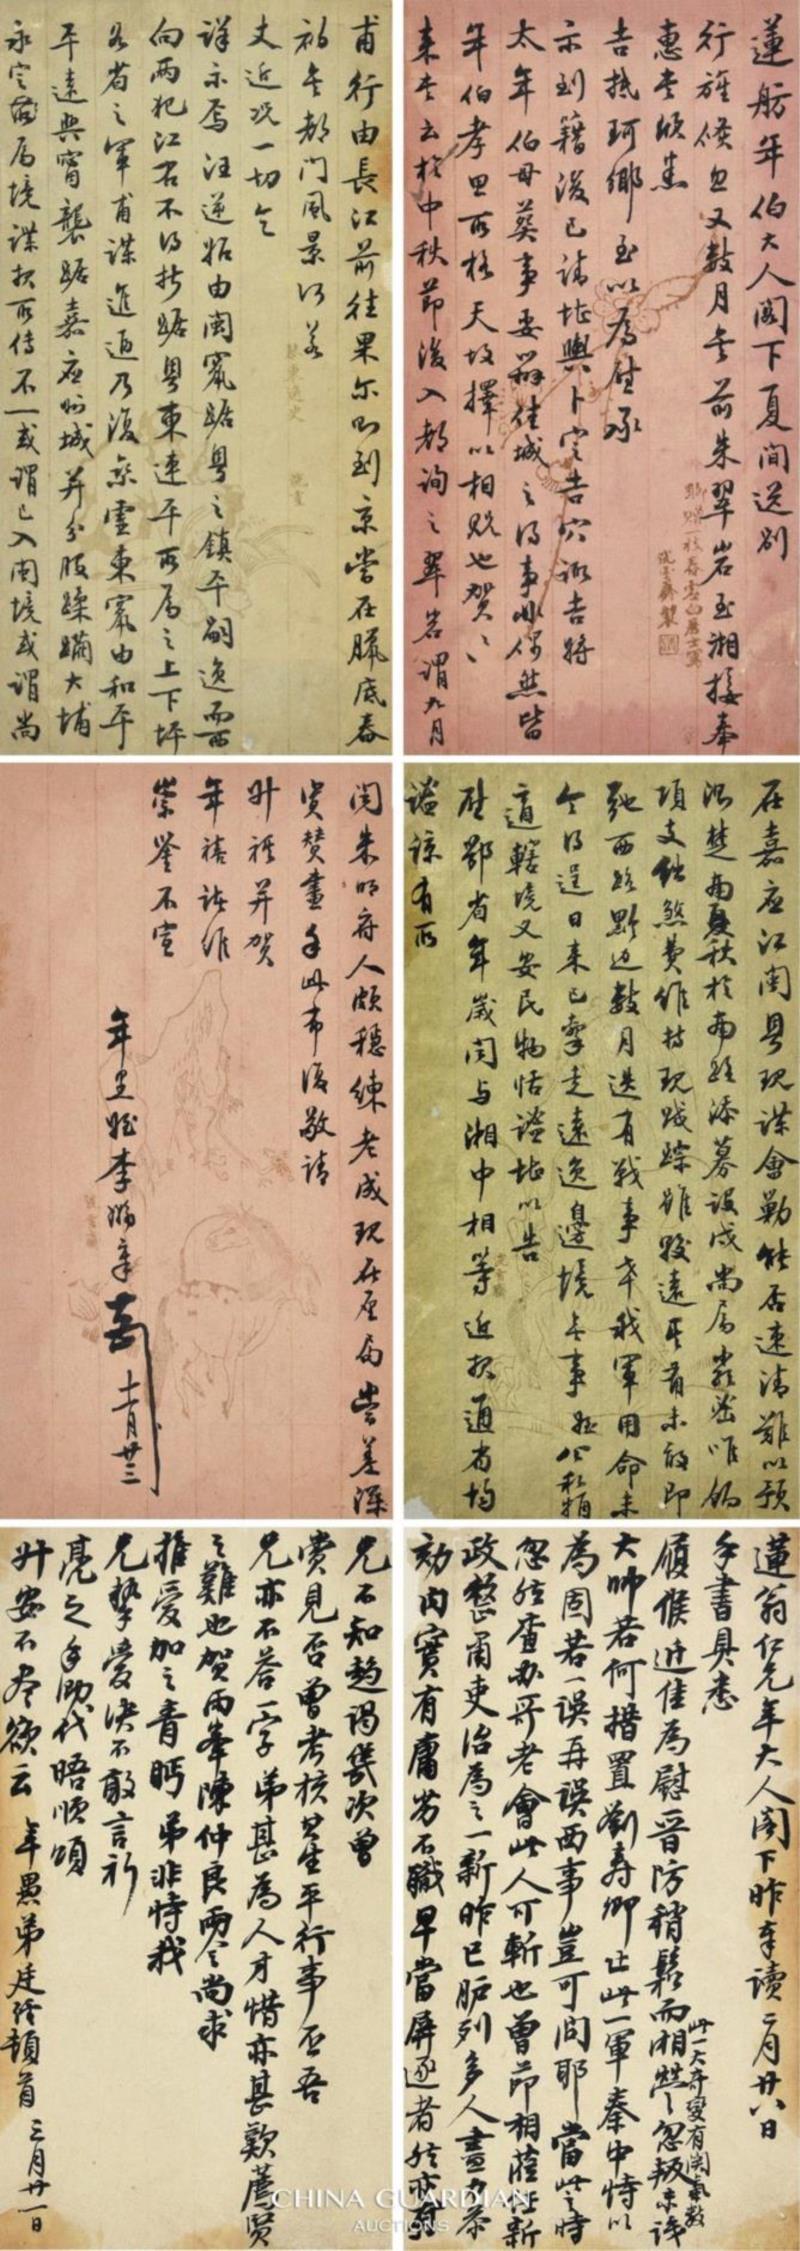 蓮舫年伯大人閣下夏間送別
行旌倏忽又數月矣前朱翠岩至湘接奉
惠書欣悉
吉抵珂鄉至以為慰承
示到籍後已請堪輿卜定吉穴諏吉將
太年伯母葬事妥辦佳城之得事非偶然皆
年伯孝思所格天故擇以相貺也賀賀
來書云於中秋節後入都詢之翠岩謂九月
甫行由長江前往果爾則到京當在臘底春
初矣都門風景何若
丈近況一切乞
詳示為汪逆怡由閩竄踞粵之鎮平嗣逸而西
向兩犯江右不得折踞粵東連平所屬之上下坪
各省之軍甫謀進逼乃復東竄由和平
平遠興甯襲踞嘉應州城並分股蹂躪大埔
永定屬境諜報所傳不一或謂已入閩境或謂尚
在嘉應江閩粵現謀會勦能否速清難以預
項支絀煞費維持現賊蹤雖較遠未敢即
弛西路黔邊數月迭有戰事幸我軍用命未
今得逞日來已擊走遠逸邊境無事
道轄境乂安民物恬謐堪以告
慰鄂省年歲聞與湘中相等近報通省均
謐諒有所
聞朱明府人頗穩練老成現在厘局當差深
資贊畫手此布復敬請
升祺並賀
年禧諸維
崇鑒不宣
年里姪李 十一月廿三
蓮翁仁兄年大人閣下昨奉讀二月廿八日
手書具悉
履候近佳為慰晉防稍鬆而湘營忽叛未識
此一大奇變有關氣數
大帥若何措置劉壽卿止此一軍秦中恃以
為固若一誤再誤西事豈可問耶當此之時
忽然查辦哥老會此人可斬也曾節相蒞任新
政整肅吏治為之一新昨已臚列多人盡力參
劾內實有庸劣不職早當屏逐者然亦有
兄不知趨謁幾次曾
賞見否曾考核其生平行事否吾
兄亦不答一字弟甚為人才惜亦甚歎薦賢
之難也賀雨峯陳仲良兩令尚求
推愛加之青眄弟非恃我
兄摯愛決不敢言祈
亮之手泐代晤順頌
升安不盡欲云 年愚弟廷 頓首 三月廿一日
CHINA GUARDIAN
AUCTIONS